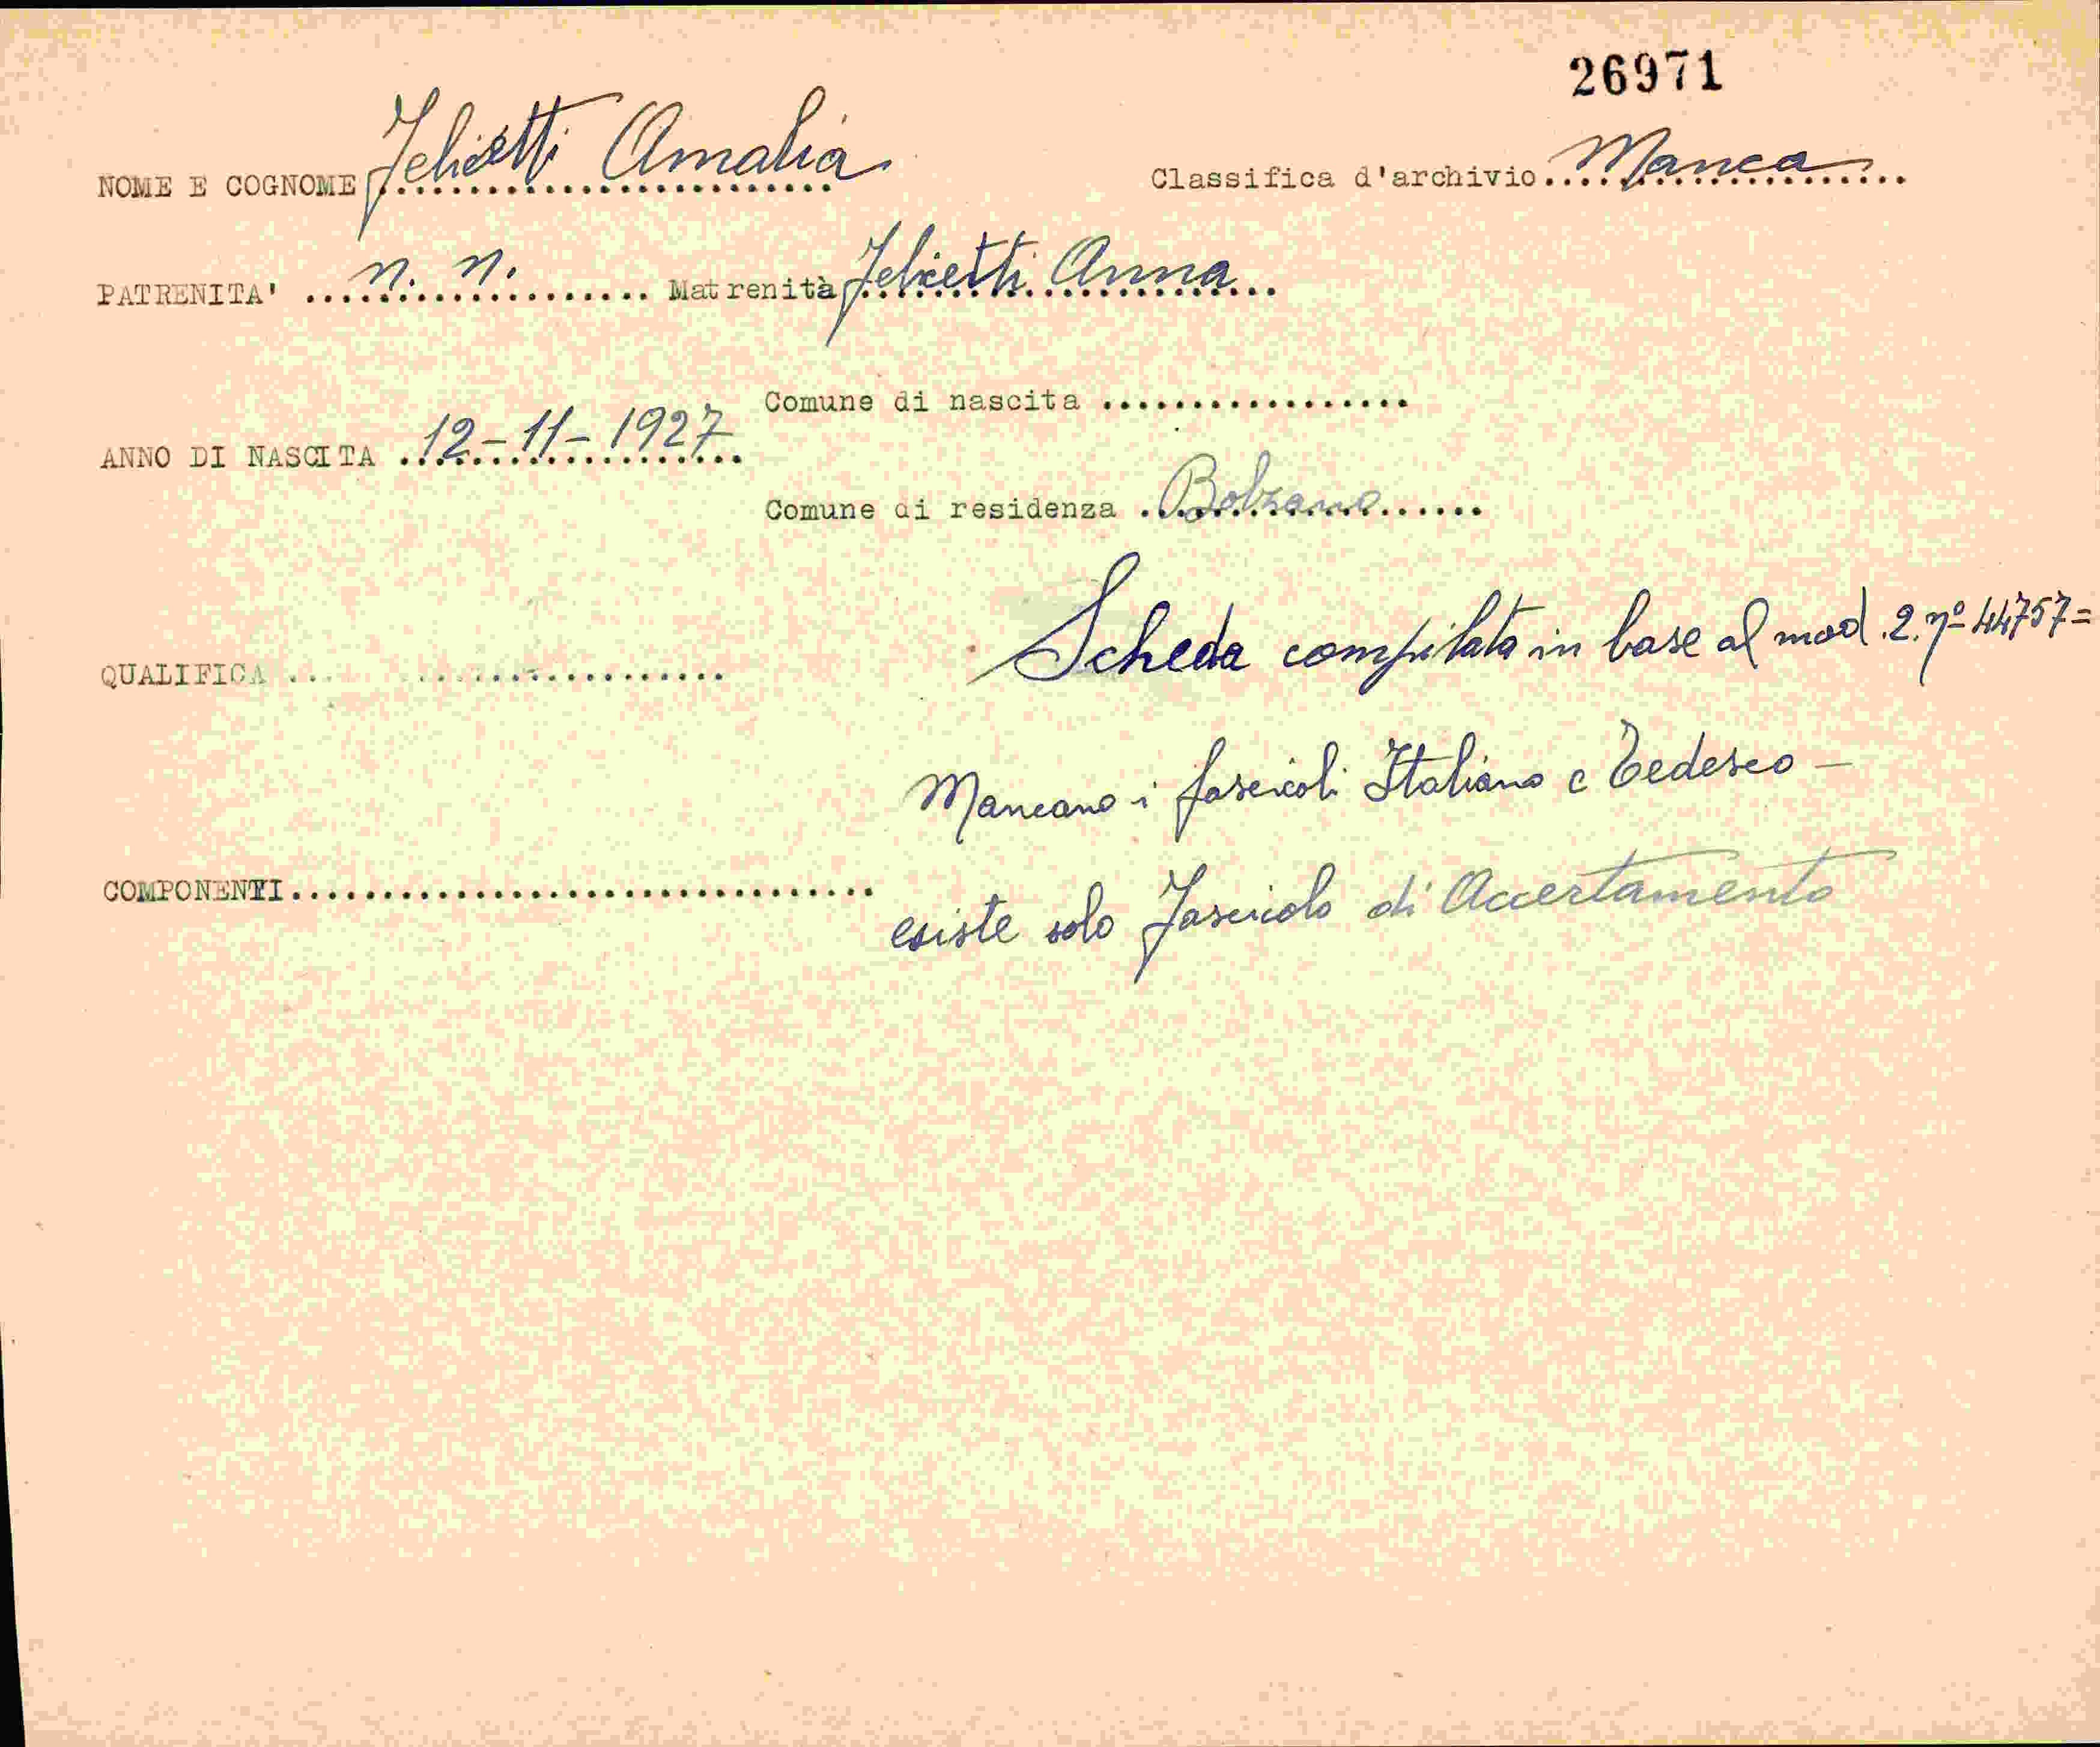 26971
NOME E COGNOME Felicetti Amalia Classifica d'archivio Manca
PATRENITA' n. n. Matrenità Felicetti Anna
Comune di nascita
ANNO DI NASCITA 12-11-1927
Comune di residenza Bolzano
Scheda compilata in base al mod. 2. nº 44757=
QUALIFICA
Mancano i fascicoli Italiano e Tedesco -
COMPONENTI
esiste solo Fascicolo di Accertamento